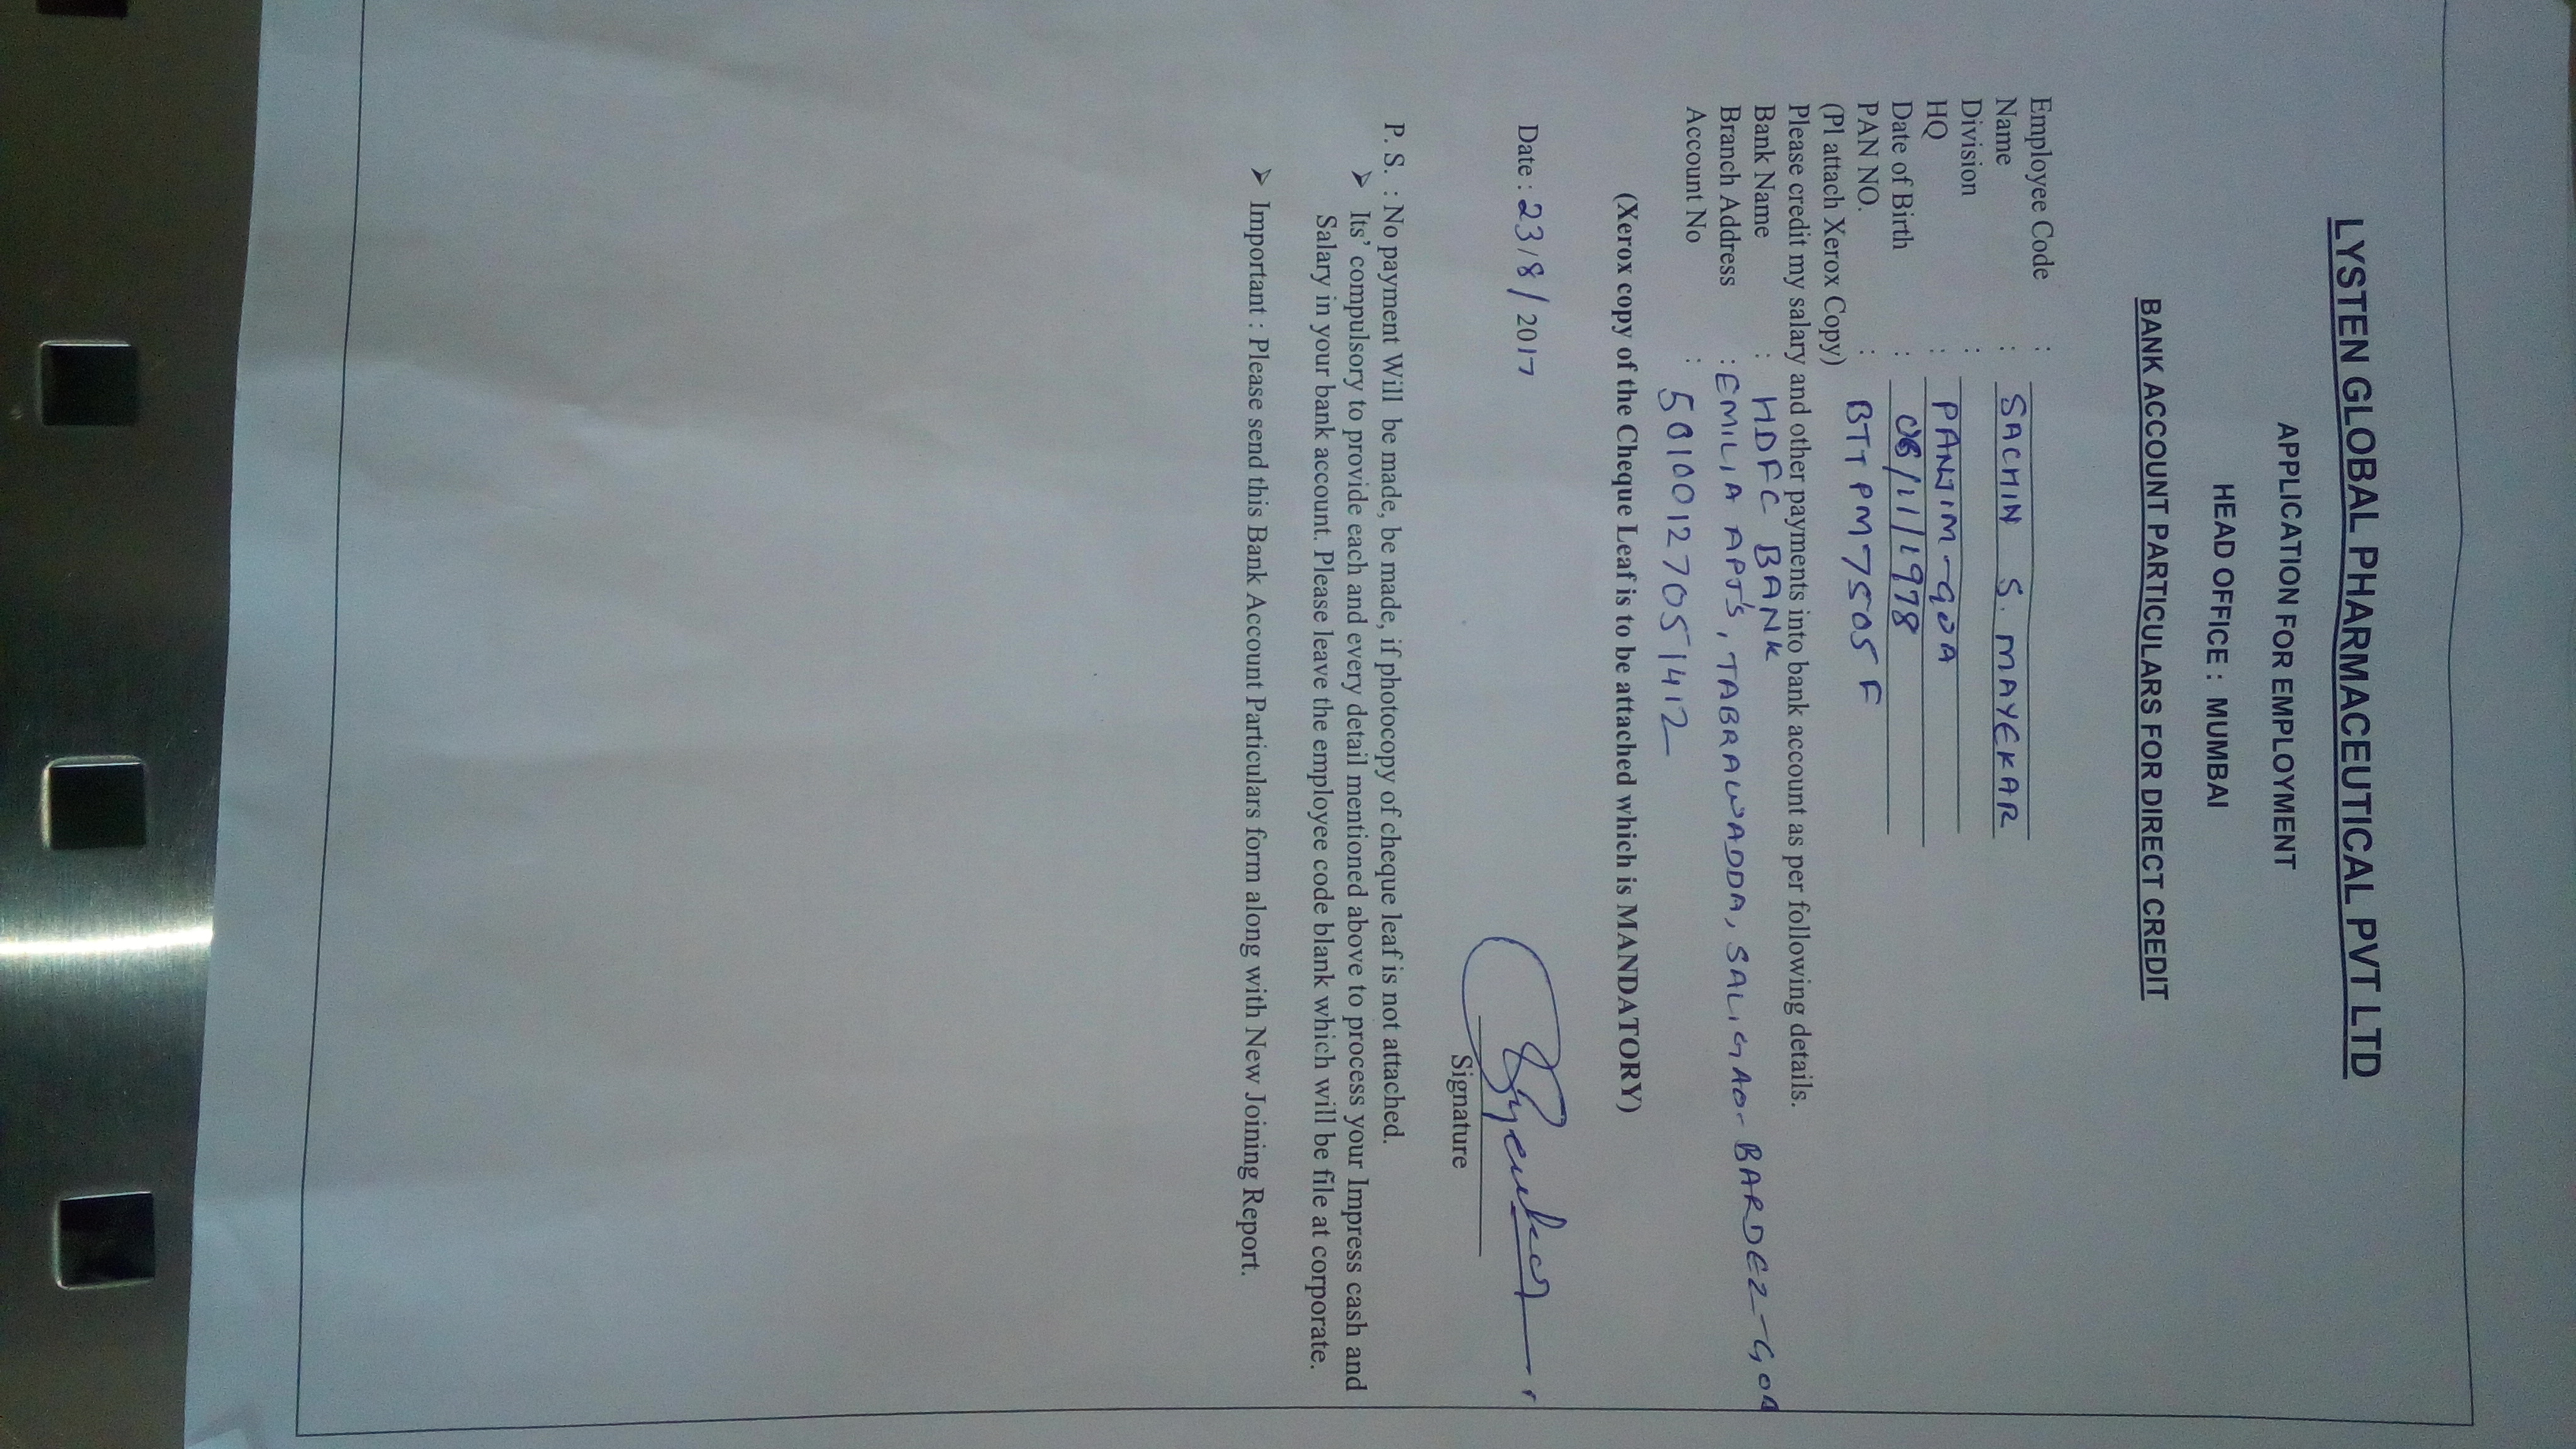 LYSTEN GLOBAL PHARMACEUTICAL PVT LTD
APPLICATION FOR EMPLOYMENT
HEAD OFFICE : MUMBAI
BANK ACCOUNT PARTICULARS FOR DIRECT CREDIT
Employee Code :
Name : SACHIN S. MAYEKAR
Division :
HQ : PANJIM-GOA
Date of Birth : 08/11/1978
PAN NO. : BTTPM7505F
(Pl attach Xerox Copy)
Please credit my salary and other payments into bank account as per following details.
Bank Name : HDFC BANK
Branch Address : EMILIA APT'S, TABRAWADDA, SALIGAO- BARDEZ-GOA
Account No : 50100127051412
(Xerox copy of the Cheque Leaf is to be attached which is MANDATORY)
Date : 23/8/2017
Signature
P. S. : No payment Will be made, be made, if photocopy of cheque leaf is not attached.
➢ Its' compulsory to provide each and every detail mentioned above to process your Impress cash and
Salary in your bank account. Please leave the employee code blank which will be file at corporate.
➢ Important : Please send this Bank Account Particulars form along with New Joining Report.